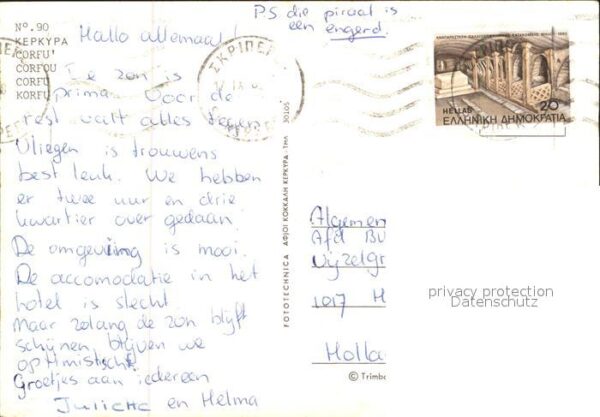 Nº. 90
ΚΕΡΚΥΡΑ
CORFU'
CORFOU
CORFU
KORFU
Hallo allemaal!
De zon is
prima. Voor de
rest valt alles tegen.
Vliegen is trouwens
best leuk. We hebben
er twee uur en drie
kwartier over gedaan.
De omgeving is mooi.
De accomodatie in het
hotel is slecht.
Maar zolang de zon blijft
schijnen, blijven we
optimistisch.
Groetjes aan iedereen
en Helma
PS die piraat is
een engerd.
ΣΚΡΙΠΕΡ
FOTOTECHNICA ΑΦΙΟΙ ΚΟΚΚΑΛΗ ΚΕΡΚΥΡΑ - ΤΗΛ. 30105
HELLAS 20
ΕΛΛΗΝΙΚΗ ΔΗΜΟΚΡΑΤΙΑ
Algemen
Afd BU
Vijzelgr
1017 H
Holla
privacy protection
Datenschutz
© Trimbo